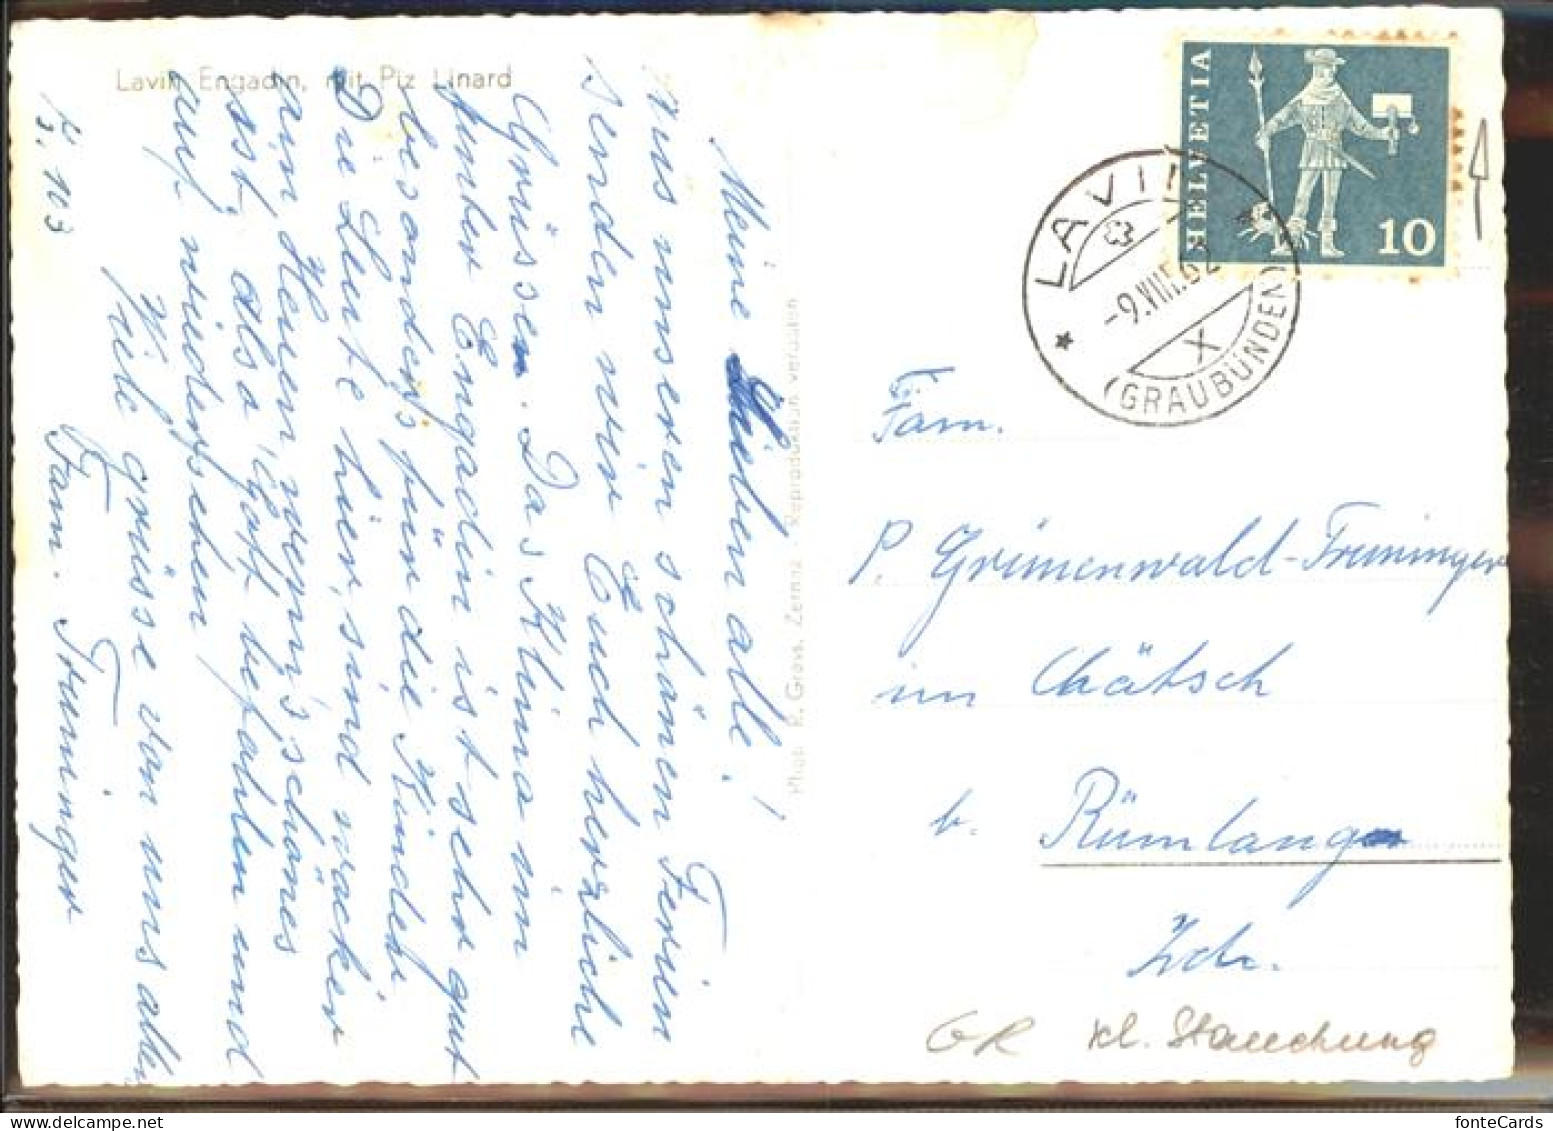 Lavin Engadin, mit Piz Linard
Meine Lieben alle!
Aus unseren schönen Ferien
senden wir Euch herzliche
Grüsse. Das Klima im
Unter Engadin ist sehr gut
besonders für die Kinder
Die Leute hier sind wacker
am Heuen wenn's schönes
ist, also Gott befohlen und
auf wiedersehen
Viele Grüsse von uns allen
Fam.
Phot. R. Grass, Zernez - Reproduktion verboten
HELVETIA
10
LAVIN
-9.VIII.62
X
(GRAUBÜNDEN)
Fam.
P. Grünenwald-Freminger
im Chätsch
b. Rümlang
Zch.
GR kl. Stauchung
fonteCards